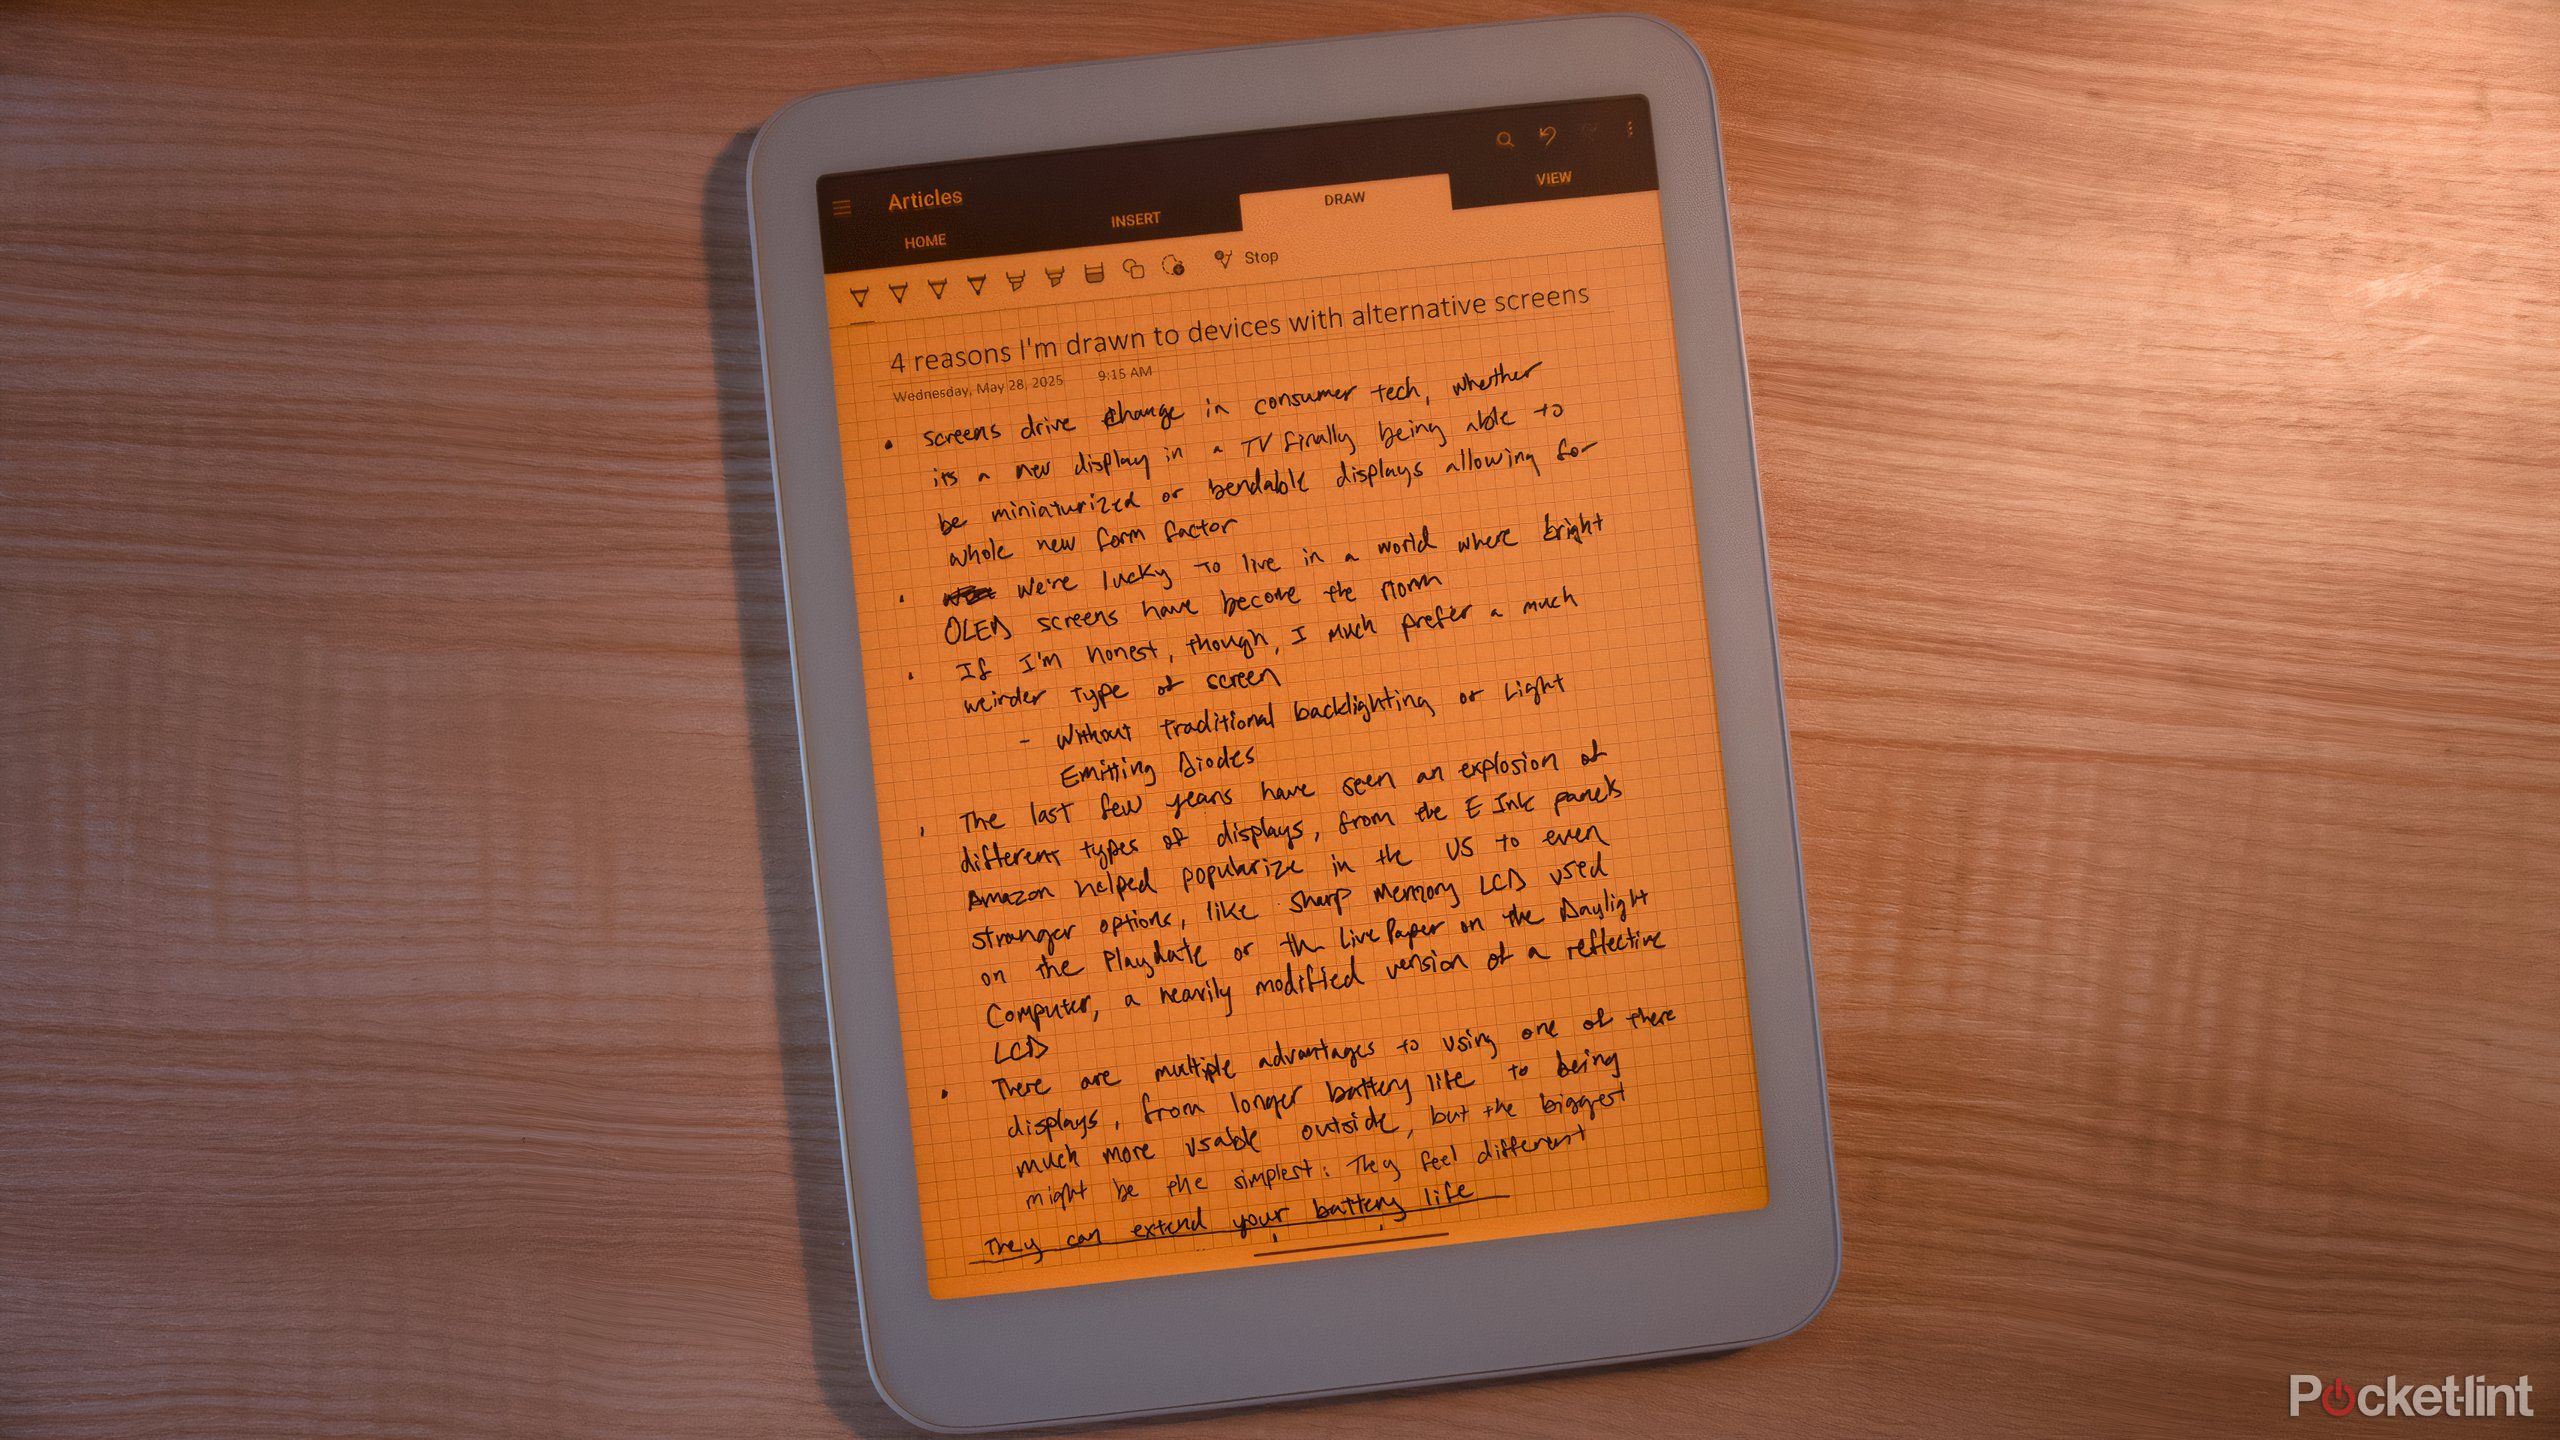 Articles
HOME
INSERT
DRAW
VIEW
Stop
4 reasons I'm drawn to devices with alternative screens
Wednesday, May 28, 2025 9:15 AM
• screens drive change in consumer tech, whether
its a new display in a TV finally being able to
be miniaturized or bendable displays allowing for
whole new form factor
• We're lucky to live in a world where bright
OLED screens have become the norm
• If I'm honest, though, I much prefer a much
weirder type of screen
- Without traditional backlighting or Light
Emitting Diodes
• The last few years have seen an explosion of
different types of displays, from the E Ink panels
Amazon helped popularize in the US to even
stranger options, like sharp memory LCD used
on the Playdate or the LivePaper on the Daylight
Computer, a heavily modified version of a reflective
LCD
• There are multiple advantages to using one of there
displays, from longer battery life to being
much more usable outside, but the biggest
might be the simplest: They feel different
They can extend your battery life
Pocket-lint